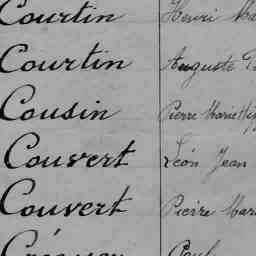 Courtin Henri
Courtin Auguste
Cousin Pierre Marie
Couvert Léon Jean
Couvert Pierre
Paul